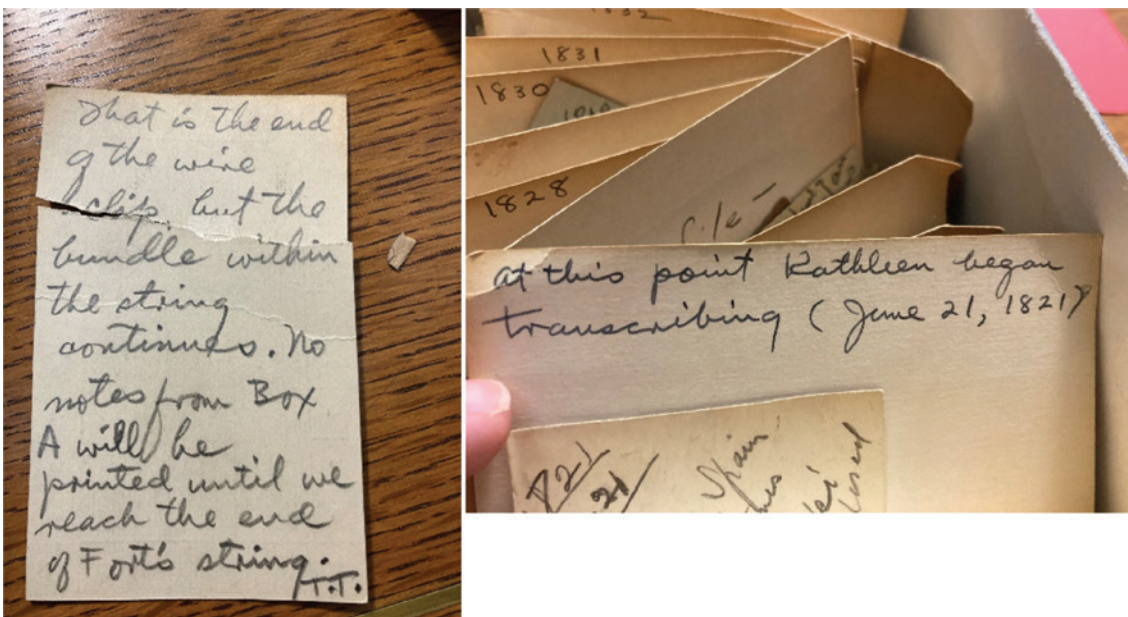 That is the end
of the wire
clip, but the
bundle within
the string
continues. No
notes from Box
A will be
printed until we
reach the end
of Fort's string.
T.T.
1832
1831
1830
1828
at this point Kathleen began
transcribing (June 21, 1821)
1821
21
Spain